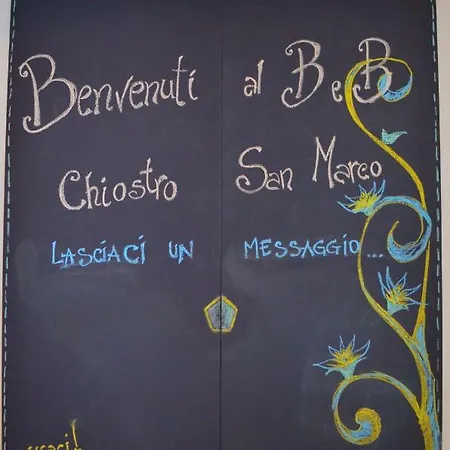 Benvenuti al B e B
Chiostro San Marco
LASCIACI UN MESSAGGIO...